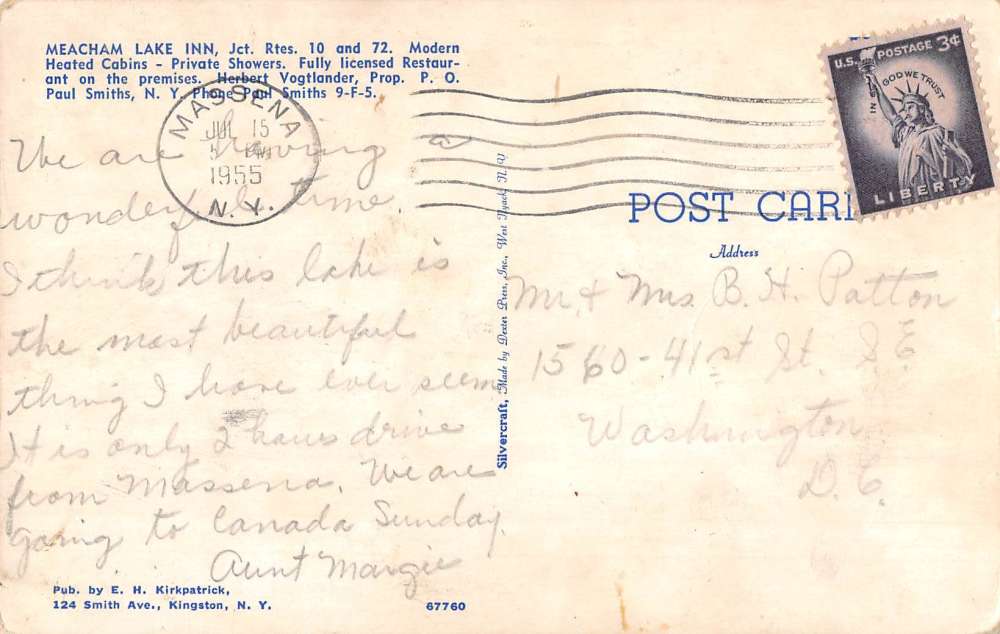 MEACHAM LAKE INN, Jct. Rtes. 10 and 72. Modern
Heated Cabins - Private Showers. Fully licensed Restaur-
ant on the premises. Herbert Vogtlander, Prop. P. O.
Paul Smiths, N. Y. Phone Paul Smiths 9-F-5.
MASSENA
JUL 15
PM
1955
N. Y.
U.S. POSTAGE 3¢
IN GOD WE TRUST
LIBERTY
We are having a
wonderful time.
I think this lake is
the most beautiful
thing I have ever seen
It is only 2 hours drive
from Massena. We are
going to Canada Sunday.
Aunt Margie
Pub. by E. H. Kirkpatrick,
124 Smith Ave., Kingston, N. Y.
67760
Silvercraft, Made by Dexter Press, Inc., West Nyack, N. Y.
POST CAR
Address
Mr. & Mrs. B. H. Patton
1560-41st St. S.E
Washington
D.C.